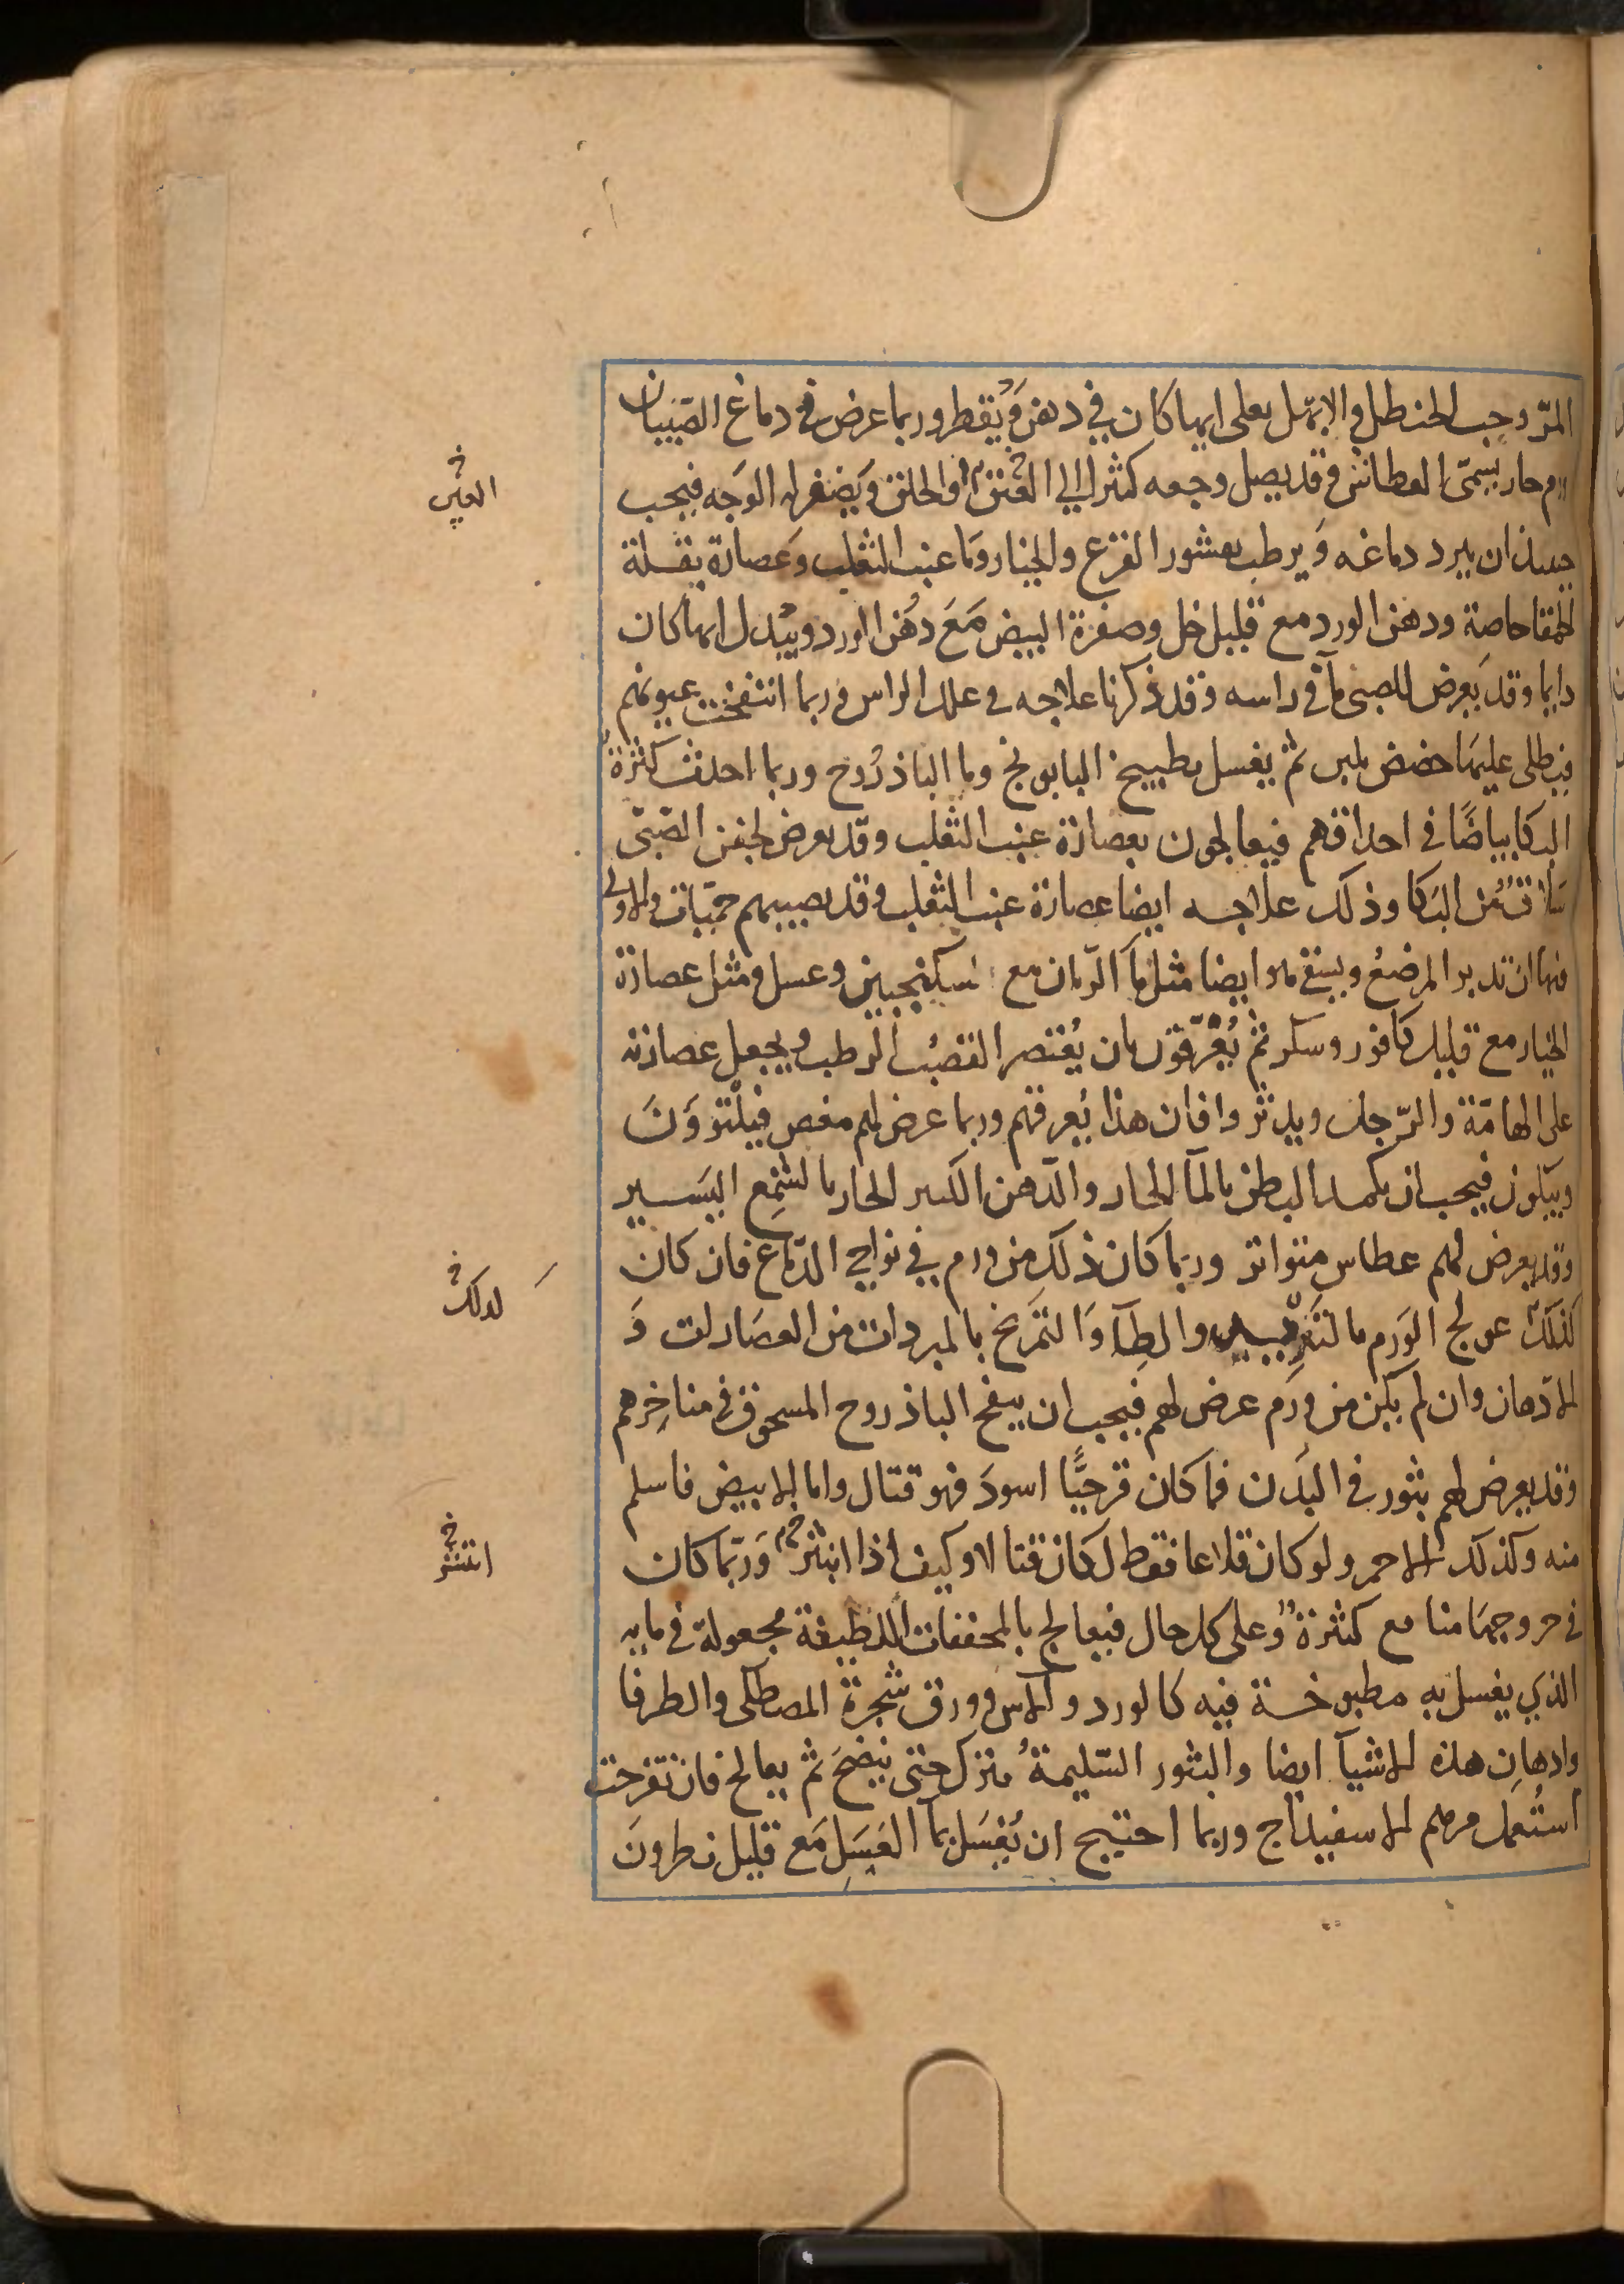 المرّ وحب الحنظل والابهل يغلى ايها كان في دهن وَيُقطر وربما عرض في دماغ الصّبيان
ورم حار يسمّى العطاش وقد يصل وجعه كثيرا الي العنق او الحلق وَيصفر له الوَجه فيجب
حينيذ ان يبرد دماغه وَيرطب بقشور القرع والخيار وَما عنب الثعلب وَعصارة بقلة
الحمقا خاصة ودهن الورد مع قليل خل وصفرة البيض مَعَ دُهن الورد ويُبدل ايها كان
دايما وقد يَعرض للصبى مآ في راسه وقد ذكرنا علاجه في علل الراس وربما انتفخت عيونهم
فيطلى عليهَا حضض بلبن ثم يغسل بطبيخ البابونج وما الباذرُوج وربما احدث كثرةُ
البكا بياضًا في احداقهم فيعالجون بعصارة عنب الثعلب وقد يعرض لجفن الصّبّى
سُلاقٌ مُن البَكا وذلك علاجه ايضا عصارة عنب الثعلب وقد يصيبهم حمّيات والاولى
فيها ان تدبر المرضعُ ويسقى هو ايضا مثل مآ الرّمان مع سكنجبين وعسل ومثل عصارة
الخيار مع قليل كافور وسكر ثم يُعْرّقون بان يُعْتصر القصبُ الرطب ويجعل عصارته
على الهامّة والرّجل ويدثروا فان هذا يُعرقهم وربما عرض لهم مغص فيلْتوَونَ
ويبكون فيجب ان يكمد البطن بالمآ الحار والدّهن الكثير الحار بالشمِع اليَسير
وقد يعرض لهم عطاس متواتر وربّما كان ذلك من ورم في نواحي الدّماغ فان كان
كذلكَ عولج الوَرم بالتّبريد والطِلآ وَالتمَريخ بالمبردات من العصَارات وَ
الادّهان وان لم يكن من ورَم عرض لهم فيجب ان ينفخ الباذروح المسحوق في مناخِرهم
وقد يعرض لهم بثور في البَدن فما كان قرحيًّا اسودَ فهو قتال واما الابيض فاسلم
منه وكذلك الاحمر ولو كان قلاعا فقط لكان قتالا وكيف اذا انبثر وَربّما كان
في خروجهَا منافع كثيرة وَعلى كل حال فيعالج بالمجففات اللطيفة مجعولة في مايه
الذي يغسل به مطبوخة فيه كالورد والآس وورق شجرة المصطكى والطرفا
وادهان هذه الاشيآ ايضا والبثور السّليمةُ تترك حتى ينضجَ ثم يعالج فان تقرحت
استُعمل مرهم الاسفيداج وربما احتيج ان يُغسَل بمآ العَسَلِ مَع قليل نطرونَ
العين خ
لذلك خ
انتشر خ